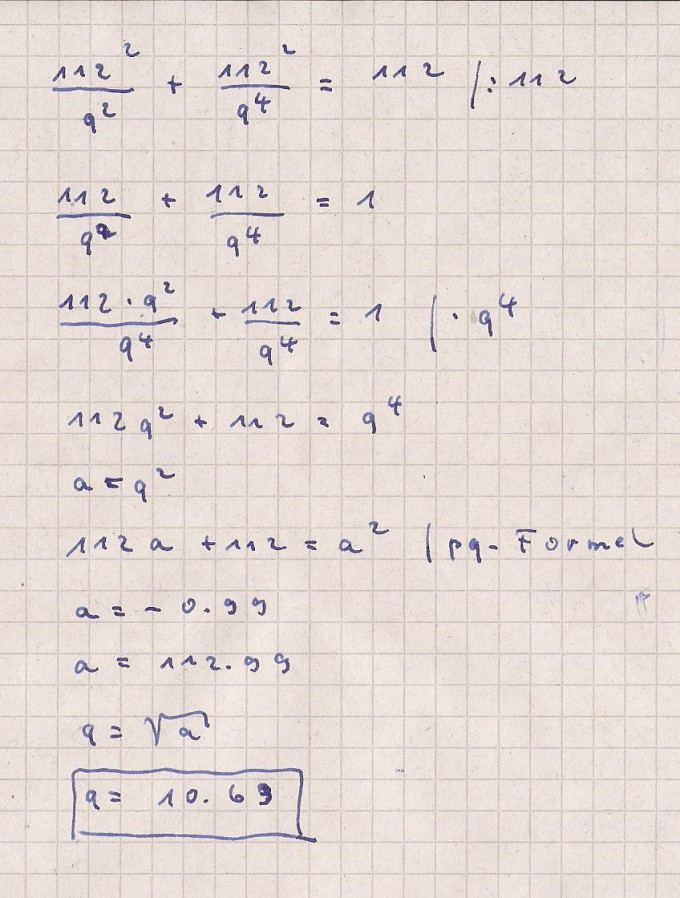 112²/q² + 112²/q⁴ = 112 | : 112
112/q² + 112/q⁴ = 1
112 · q²/q⁴ + 112/q⁴ = 1 | · q⁴
112 q² + 112 = q⁴
a = q²
112 a + 112 = a² | pq-Formel
a = -0.99
a = 112.99
q = √a
q = 10.63